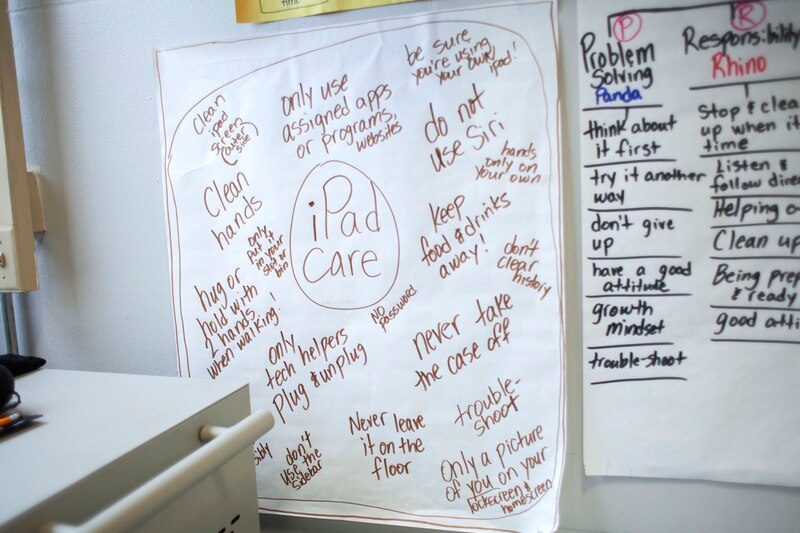 time
clean
ipad
screen
only use
assigned apps
or programs,
websites
be sure
you're using
your own
ipad!
do not
use Siri
hands
only on
your own
clean
hands
only
put it
in your
slot or
bin
iPad
care
keep
food & drinks
away!
don't
clear
history
hug or
hold with
2 hands
when walking!
NO
password
only
tech helpers
plug & unplug
never take
the case off
don't
use the
sidebar
Never leave
it on the
floor
trouble-
shoot
Only a picture
of you on your
lockscreen &
homescreen
P
Problem
Solving
Panda
think about
it first
try it another
way
don't give
up
have a good
attitude
growth
mindset
trouble-shoot
R
Responsibility
Rhino
Stop & clea
up when it
time
Listen &
follow direc
Helping o
Clean up
Being prep
& ready
good atti